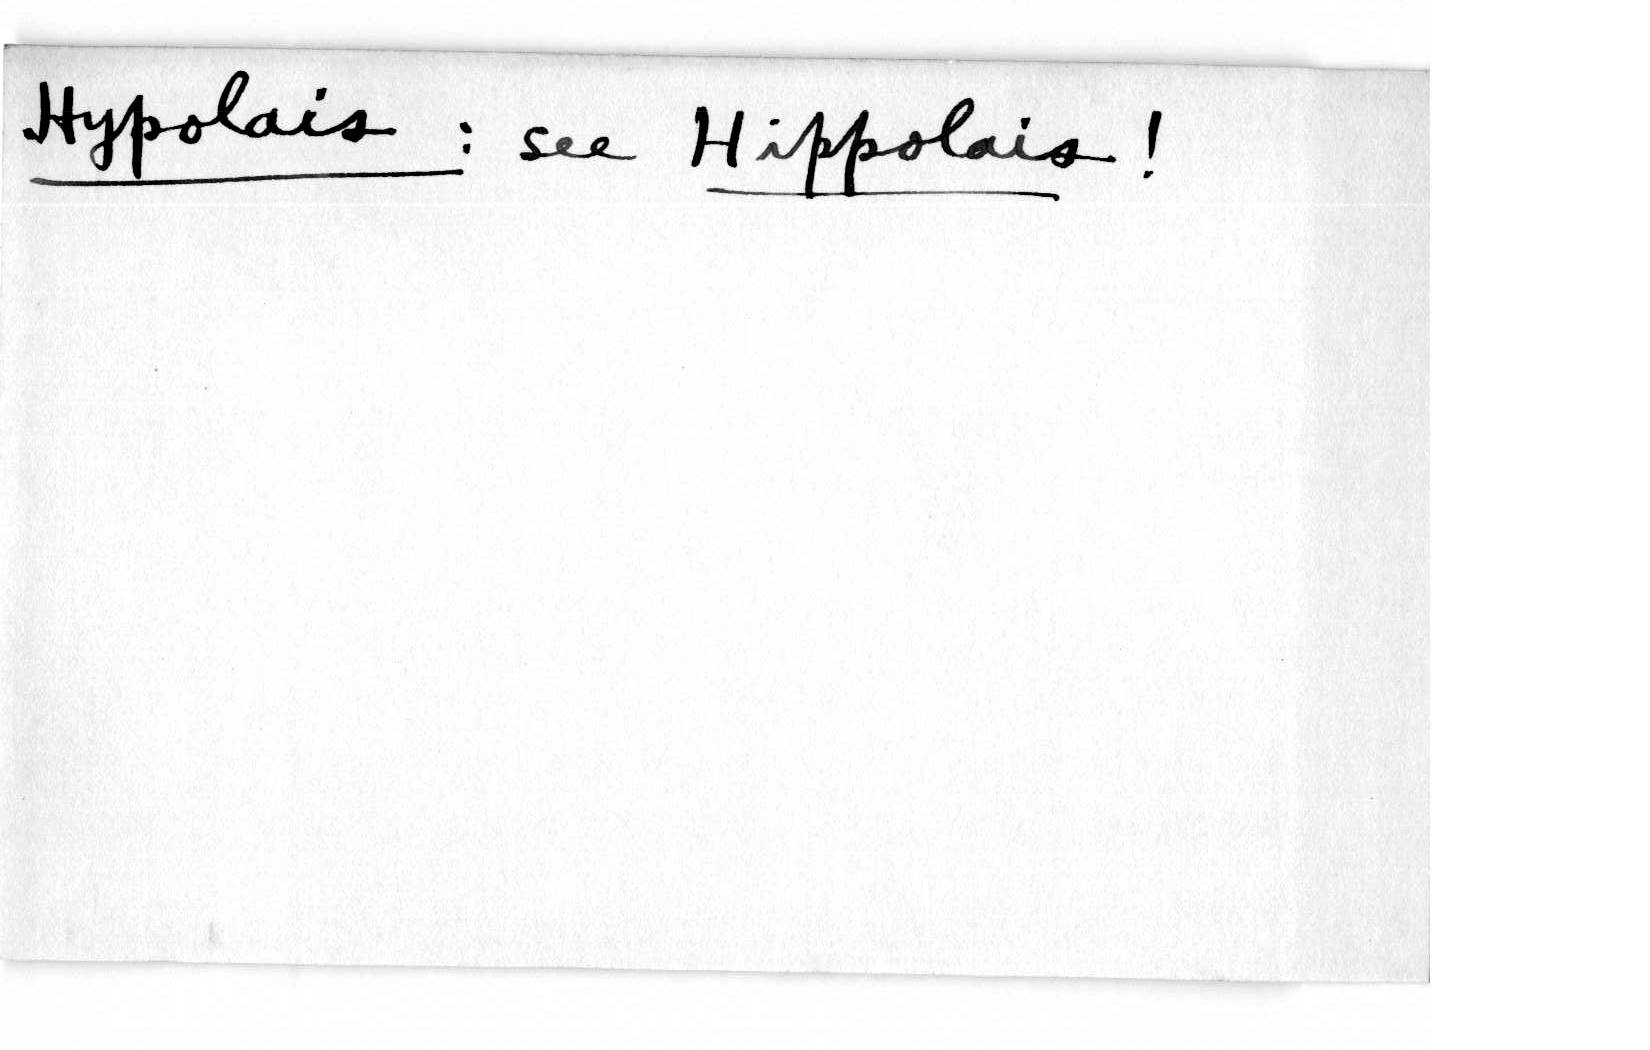 Hypolais : see Hippolais !